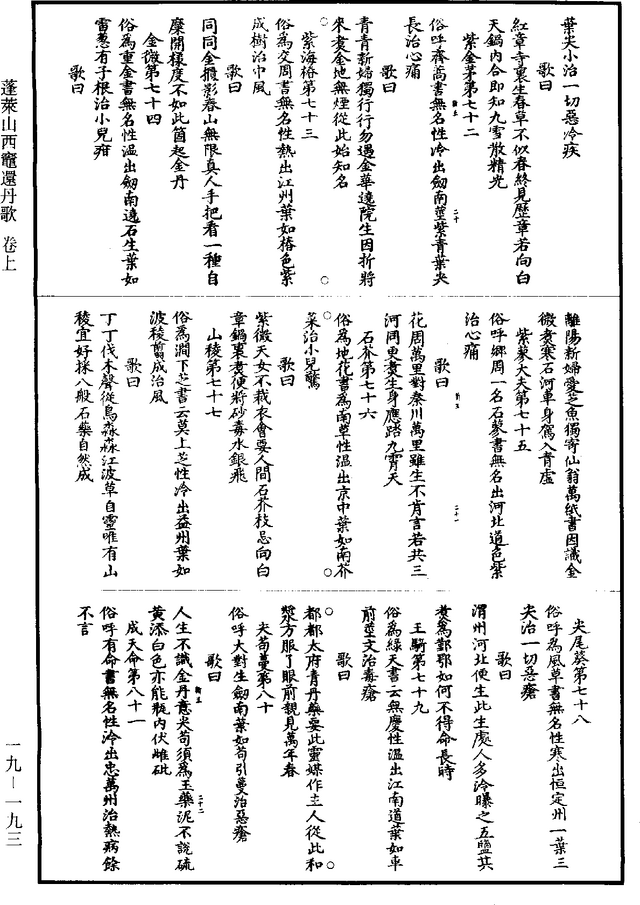 葉尖小治一切惡冷疾
歌曰
紅章寺裏生春草不似春終見歷章若向白
天鍋內合即知九雪散精光
紫金茅第七十二
俗呼齊蒿書名性冷出劒南莖紫青葉尖
長治心痛
歌曰
青青新婦獨行行勿遇金華遶院生因折將
來煑金地無煙從此始知名
紫海椿第七十三
俗為交周書無名性熱出江州葉如椿色紫
成樹治中風
歌曰
同同金攏影春山無限真人手把看一種自
糜開樣度不如此箇起金丹
金微第七十四
俗為重金書無名性溫出劒南遶石生葉如
雷葱有子根治小兒疳
歌曰
離陽新婦愛芝魚獨寄仙翁萬紙書因識金
微煑寒石河車身駕入青虛
紫蒙大夫第七十五
俗呼鄉周一名石蓼書無名出河北道色紫
治心痛
歌曰
花周萬里對秦川萬里雖生不肯言若共三
河同更煑生身應路九霄天
石芥第七十六
俗為地花書為南草性溫出京中葉如南芥
菜治小兒驚
歌曰
紫微天女不裁衣會要人間石芥枝忌向白
章鍋裏煑便將砂毒水銀飛
山稜第七十七
俗為澗下芝書云莫上芝性冷出益州葉如
波稜翦成治風
歌曰
丁丁伐木聲從鳥淼淼江波草自靈唯有山
稜宜好採八般石藥自然成
尖尾葵第七十八
俗呼為風草書無名性寒出恒定州一葉三
尖治一切惡瘡
歌曰
渭州河北便生此生處人多冷曝之五鹽共
煑為鄞鄂如何不得命長時
王騎第七十九
俗為綠天書云無慶性溫出江南道葉如車
前莖文治毒瘡
歌曰
都都太府青丹藥要此靈媒作主人從此和
漿方服了眼前親見萬年春
尖苟蔓第八十
俗呼大對生劒南葉如苟引蔓治惡瘡
歌曰
人生不識金丹意尖苟須為玉藥泥不說硫
黃添白色亦能瓶內伏雌砒
成天命第八十一
俗呼有命書無名性冷出忠萬州治熱病餘
不言
蓬萊山西竈還丹歌 卷上
一九－一九三